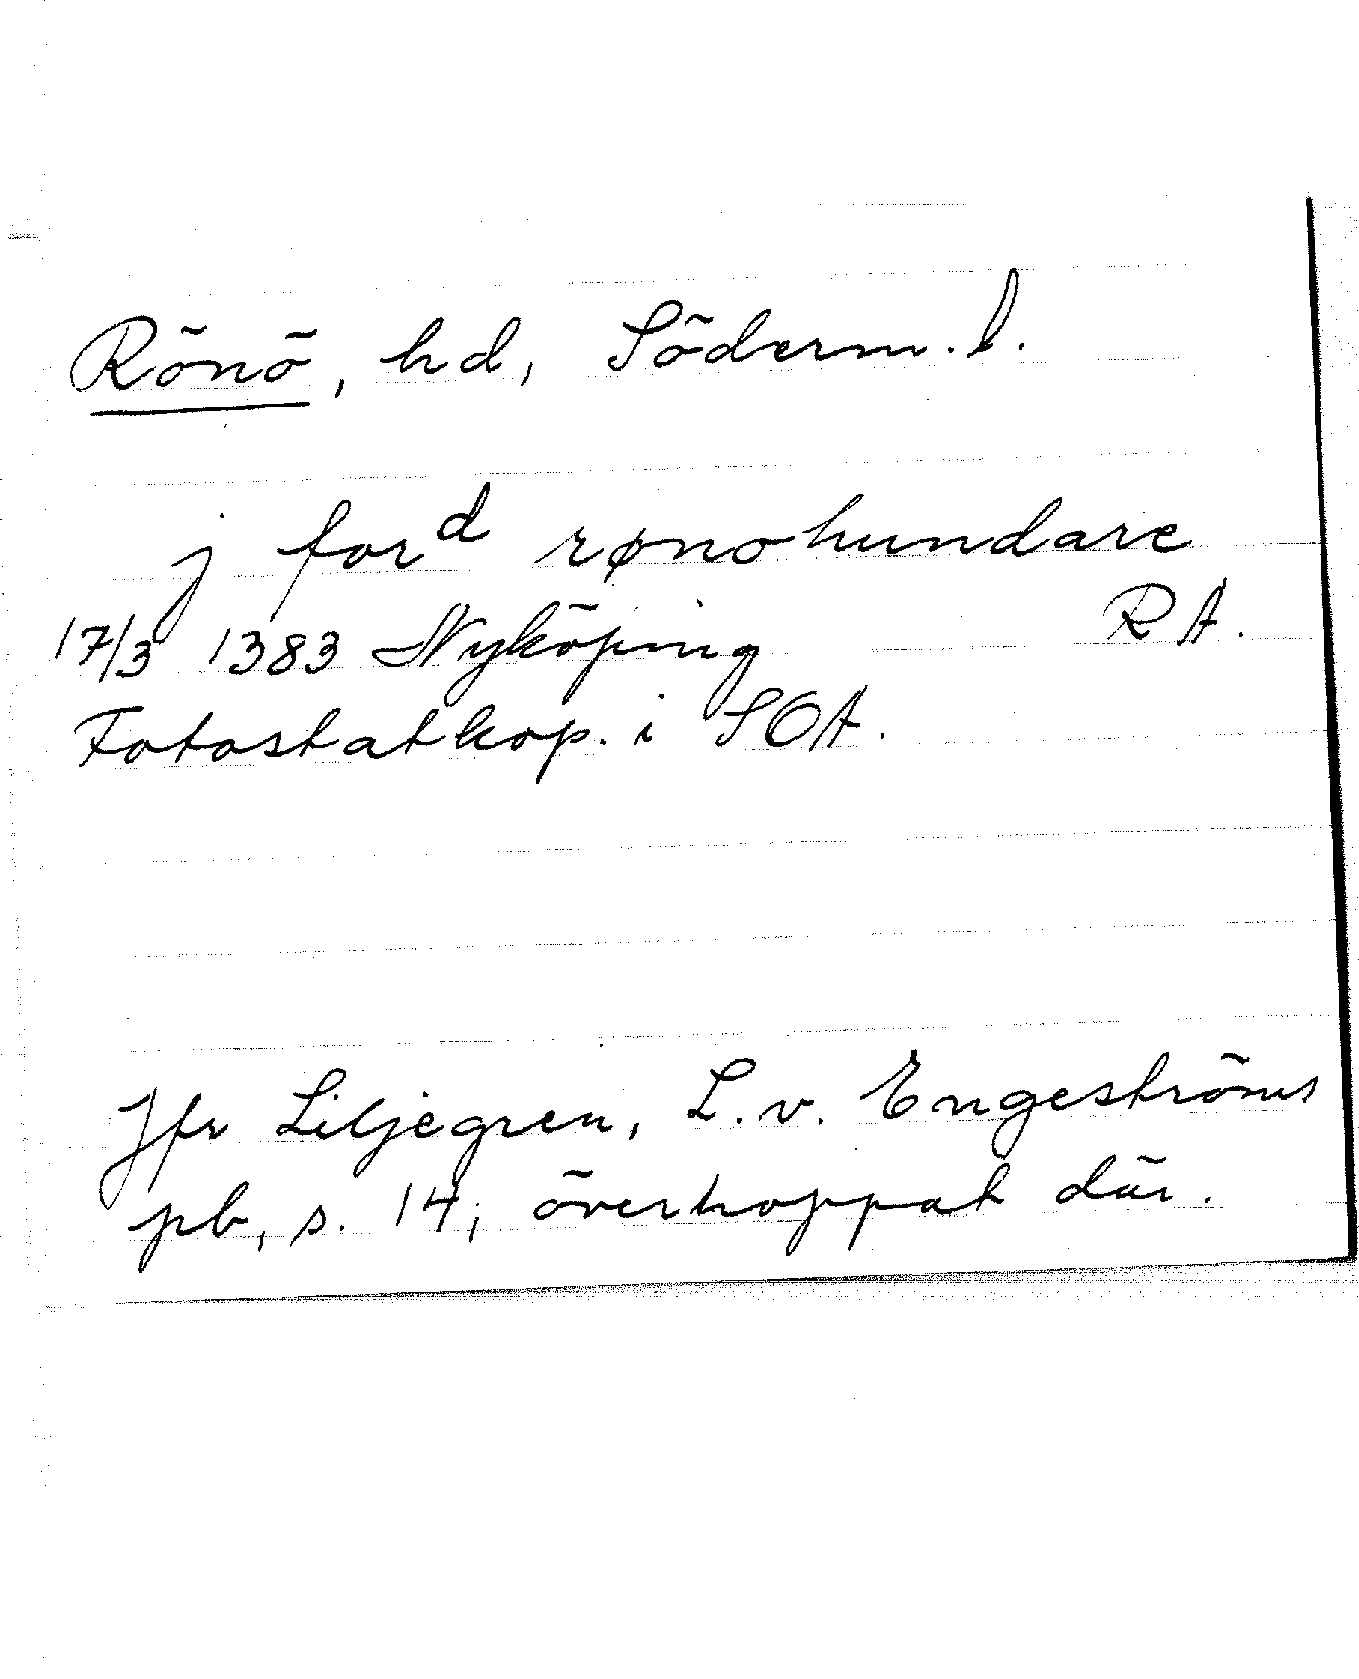 Rönö, hd, Söderm. l.
j ford rønohundare
17/3 1383 Nyköping RA.
Fotostatkop. i SOA.
Jfr Liljegren, L. v. Engeströms
pb, s. 14; överhoppat där.